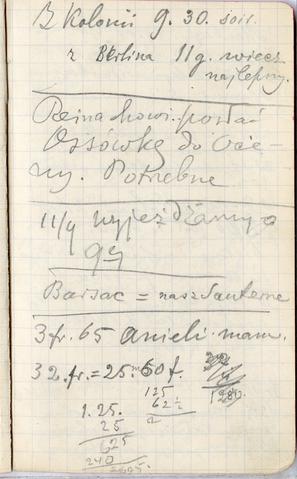 Z Kolonii 9. 30. soir.
z Berlina 11 g. wiecz
najlepszy.
posłać
Ossówkę do Oce-
ny. Potrzebne
11/4 wyjeżdżamy o
9½
Barsac = nasz Sauterne
3 fr. 65 Anieli mam.
32. fr. = 25 m 60 f.
125
62 ½
1.25.
25
625
240